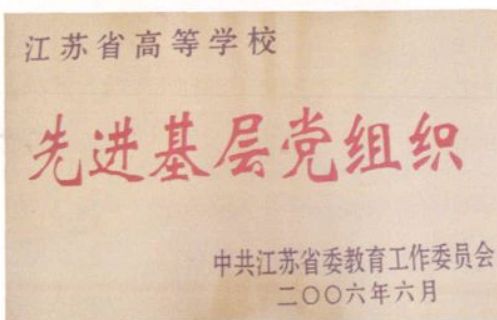 江苏省高等学校
先进基层党组织
中共江苏省委教育工作委员会
二〇〇六年六月